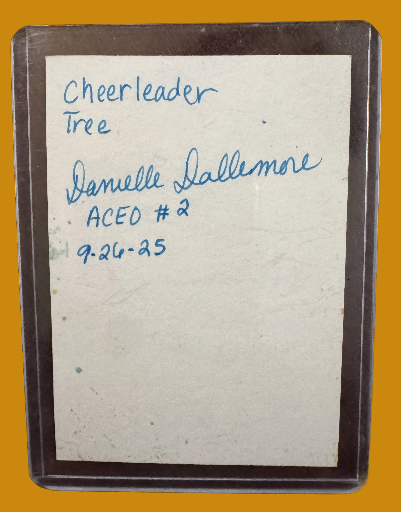 Cheerleader
Tree
Danielle Dallemore
ACEO #2
9-26-25